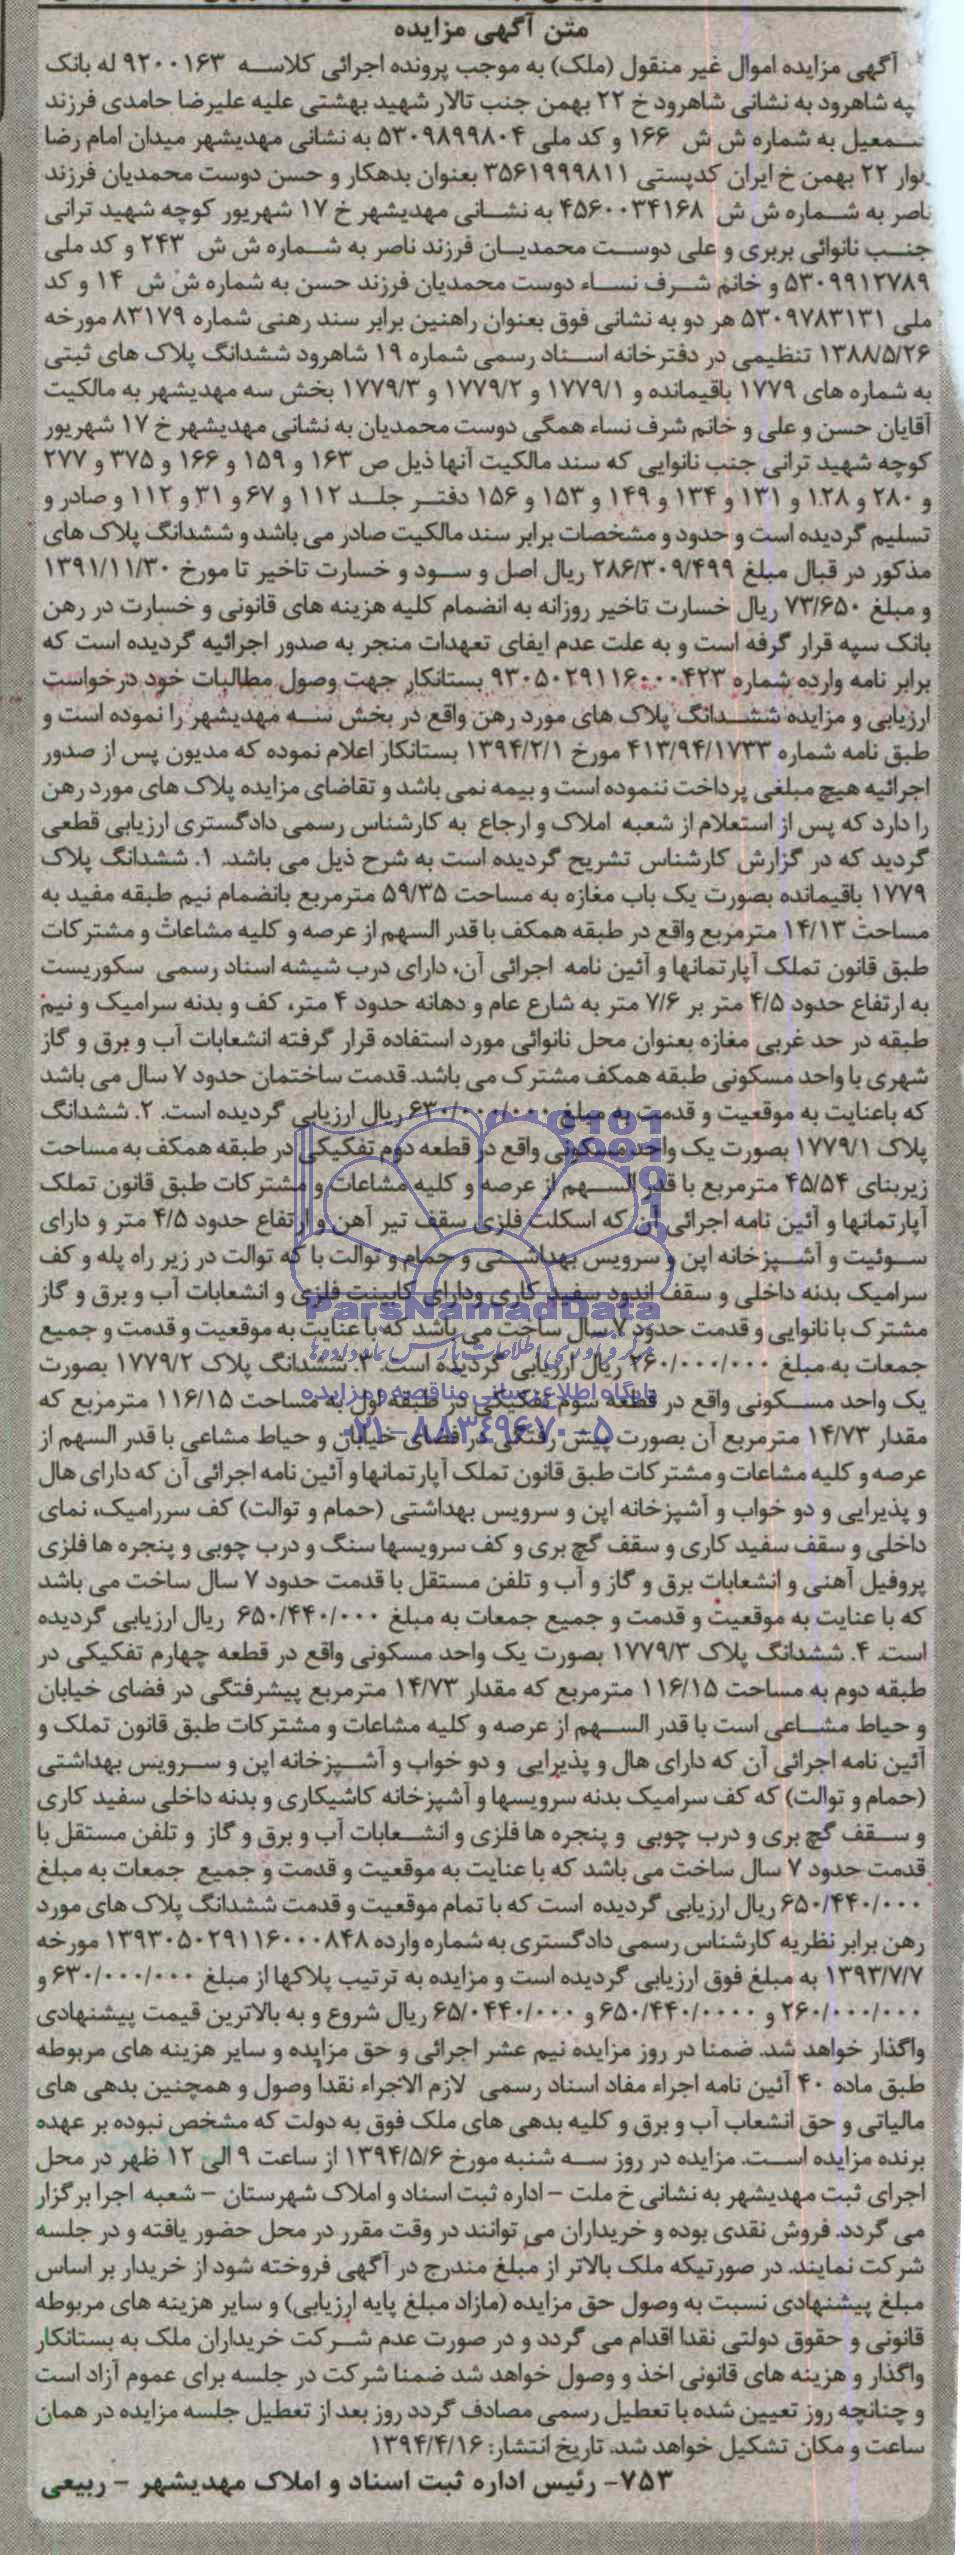 متن آگهی مزایده
آگهی مزایده اموال غیر منقول (ملک) به موجب پرونده اجرائی کلاسه ۹۲۰۰۱۶۳ له بانک
په شاهرود به نشانی شاهرود خ ۲۲ بهمن جنب تالار شهید بهشتی علیه علیرضا حامدی فرزند
سمعیل به شماره ش ش ۱۶۶ و کد ملی ۵۳۰۹۸۹۹۸۰۴ به نشانی مهدیشهر میدان امام رضا
لوار ۲۲ بهمن خ ایران کدپستی ۳۵۶۱۹۹۹۸۱۱ بعنوان بدهکار و حسن دوست محمدیان فرزند
ناصر به شماره ش ش ۴۵۶۰۰۳۴۱۶۸ به نشانی مهدیشهر خ ۱۷ شهریور کوچه شهید ترانی
جنب نانوائی بربری و علی دوست محمدیان فرزند ناصر به شماره ش ش ۲۴۳ و کد ملی
۵۳۰۹۹۱۲۷۸۹ و خانم شرف نساء دوست محمدیان فرزند حسن به شماره ش ش ۱۴ و کد
ملی ۵۳۰۹۷۸۳۱۳۱ هر دو به نشانی فوق بعنوان راهنین برابر سند رهنی شماره ۸۳۱۷۹ مورخه
۱۳۸۸/۵/۲۶ تنظیمی در دفترخانه اسناد رسمی شماره ۱۹ شاهرود ششدانگ پلاک های ثبتی
به شماره های ۱۷۷۹ باقیمانده و ۱۷۷۹/۱ و ۱۷۷۹/۲ و ۱۷۷۹/۳ بخش سه مهدیشهر به مالکیت
آقایان حسن و علی و خانم شرف نساء همگی دوست محمدیان به نشانی مهدیشهر خ ۱۷ شهریور
کوچه شهید ترانی جنب نانوایی که سند مالکیت آنها ذیل ص ۱۶۳ و ۱۵۹ و ۱۶۶ و ۳۷۵ و ۲۷۷
و ۲۸۰ و ۱۲۸ و ۱۳۱ و ۱۳۴ و ۱۴۹ و ۱۵۳ و ۱۵۶ دفتر جلد ۱۱۲ و ۶۷ و ۳۱ و ۱۱۲ و صادر و
تسلیم گردیده است و حدود و مشخصات برابر سند مالکیت صادر می باشد و ششدانگ پلاک های
مذکور در قبال مبلغ ۲۸۶/۳۰۹/۴۹۹ ریال اصل و سود و خسارت تاخیر تا مورخ ۱۳۹۱/۱۱/۳۰
و مبلغ ۷۳/۶۵۰ ریال خسارت تاخیر روزانه به انضمام کلیه هزینه های قانونی و خسارت در رهن
بانک سپه قرار گرفه است و به علت عدم ایفای تعهدات منجر به صدور اجرائیه گردیده است که
برابر نامه وارده شماره ۹۳۰۵۰۲۹۱۱۶۰۰۰۴۲۳ بستانکار جهت وصول مطالبات خود درخواست
ارزیابی و مزایده ششدانگ پلاک های مورد رهن واقع در بخش سه مهدیشهر را نموده است و
طبق نامه شماره ۴۱۳/۹۴/۱۷۳۳ مورخ ۱۳۹۴/۲/۱ بستانکار اعلام نموده که مدیون پس از صدور
اجرائیه هیچ مبلغی پرداخت ننموده است و بیمه نمی باشد و تقاضای مزایده پلاک های مورد رهن
را دارد که پس از استعلام از شعبه املاک و ارجاع به کارشناس رسمی دادگستری ارزیابی قطعی
گردید که در گزارش کارشناس تشریح گردیده است به شرح ذیل می باشد. ۱. ششدانگ پلاک
۱۷۷۹ باقیمانده بصورت یک باب مغازه به مساحت ۵۹/۳۵ مترمربع بانضمام نیم طبقه مفید به
مساحت ۱۴/۱۳ مترمربع واقع در طبقه همکف با قدر السهم از عرصه و کلیه مشاعات و مشترکات
طبق قانون تملک آپارتمانها و آئین نامه اجرائی آن، دارای درب شیشه اسناد رسمی سکوریست
به ارتفاع حدود ۴/۵ متر بر ۷/۶ متر به شارع عام و دهانه حدود ۴ متر، کف و بدنه سرامیک و نیم
طبقه در حد غربی مغازه بعنوان محل نانوائی مورد استفاده قرار گرفته انشعابات آب و برق و گاز
شهری با واحد مسکونی طبقه همکف مشترک می باشد. قدمت ساختمان حدود ۷ سال می باشد
که باعنایت به موقعیت و قدمت به مبلغ ۶۳۰/۰۰۰/۰۰۰ ریال ارزیابی گردیده است. ۲. ششدانگ
پلاک ۱۷۷۹/۱ بصورت یک واحد مسکونی واقع در قطعه دوم تفکیکی در طبقه همکف به مساحت
زیربنای ۴۵/۵۴ مترمربع با قدر السهم از عرصه و کلیه مشاعات و مشترکات طبق قانون تملک
آپارتمانها و آئین نامه اجرائی آن که اسکلت فلزی سقف تیر آهن و ارتفاع حدود ۴/۵ متر و دارای
سوئیت و آشپزخانه اپن و سرویس بهداشتی و حمام و توالت با که توالت در زیر راه پله و کف
سرامیک بدنه داخلی و سقف اندود سفید کاری ودارای کابینت فلزی و انشعابات آب و برق و گاز
مشترک با نانوایی و قدمت حدود ۷ سال ساخت می باشد که با عنایت به موقعیت و قدمت و جمیع
جمعات به مبلغ ۲۶۰/۰۰۰/۰۰۰ ریال ارزیابی گردیده است. ۳. ششدانگ پلاک ۱۷۷۹/۲ بصورت
یک واحد مسکونی واقع در قطعه سوم تفکیکی در طبقه اول به مساحت ۱۱۶/۱۵ مترمربع که
مقدار ۱۴/۷۳ مترمربع آن بصورت پیش رفتگی در فضای خیابان و حیاط مشاعی با قدر السهم از
عرصه و کلیه مشاعات و مشترکات طبق قانون تملک آپارتمانها و آئین نامه اجرائی آن که دارای هال
و پذیرایی و دو خواب و آشپزخانه اپن و سرویس بهداشتی (حمام و توالت) کف سررامیک، نمای
داخلی و سقف سفید کاری و سقف گچ بری و کف سرویسها سنگ و درب چوبی و پنجره ها فلزی
پروفیل آهنی و انشعابات برق و گاز و آب و تلفن مستقل با قدمت حدود ۷ سال ساخت می باشد
که با عنایت به موقعیت و قدمت و جمیع جمعات به مبلغ ۶۵۰/۴۴۰/۰۰۰ ریال ارزیابی گردیده
است. ۴. ششدانگ پلاک ۱۷۷۹/۳ بصورت یک واحد مسکونی واقع در قطعه چهارم تفکیکی در
طبقه دوم به مساحت ۱۱۶/۱۵ مترمربع که مقدار ۱۴/۷۳ مترمربع پیشرفتگی در فضای خیابان
و حیاط مشاعی است با قدر السهم از عرصه و کلیه مشاعات و مشترکات طبق قانون تملک و
آئین نامه اجرائی آن که دارای هال و پذیرایی و دو خواب و آشپزخانه اپن و سرویس بهداشتی
(حمام و توالت) که کف سرامیک بدنه سرویسها و آشپزخانه کاشیکاری و بدنه داخلی سفید کاری
و سقف گچ بری و درب چوبی و پنجره ها فلزی و انشعابات آب و برق و گاز و تلفن مستقل با
قدمت حدود ۷ سال ساخت می باشد که با عنایت به موقعیت و قدمت و جمیع جمعات به مبلغ
۶۵۰/۴۴۰/۰۰۰ ریال ارزیابی گردیده است که با تمام موقعیت و قدمت ششدانگ پلاک های مورد
رهن برابر نظریه کارشناس رسمی دادگستری به شماره وارده ۱۳۹۳۰۵۰۲۹۱۱۶۰۰۰۸۴۸ مورخه
۱۳۹۳/۷/۷ به مبلغ فوق ارزیابی گردیده است و مزایده به ترتیب پلاکها از مبلغ ۶۳۰/۰۰۰/۰۰۰ و
۲۶۰/۰۰۰/۰۰۰ و ۶۵۰/۴۴۰/۰۰۰۰ و ۶۵/۰۴۴۰/۰۰۰ ریال شروع و به بالاترین قیمت پیشنهادی
واگذار خواهد شد. ضمنا در روز مزایده نیم عشر اجرائی و حق مزایده و سایر هزینه های مربوطه
طبق ماده ۴۰ آئین نامه اجراء مفاد اسناد رسمی لازم الاجراء نقدا وصول و همچنین بدهی های
مالیاتی و حق انشعاب آب و برق و کلیه بدهی های ملک فوق به دولت که مشخص نبوده بر عهده
برنده مزایده است. مزایده در روز سه شنبه مورخ ۱۳۹۴/۵/۶ از ساعت ۹ الی ۱۲ ظهر در محل
اجرای ثبت مهدیشهر به نشانی خ ملت – اداره ثبت اسناد و املاک شهرستان – شعبه اجرا برگزار
می گردد. فروش نقدی بوده و خریداران می توانند در وقت مقرر در محل حضور یافته و در جلسه
شرکت نمایند. در صورتیکه ملک بالاتر از مبلغ مندرج در آگهی فروخته شود از خریدار بر اساس
مبلغ پیشنهادی نسبت به وصول حق مزایده (مازاد مبلغ پایه ارزیابی) و سایر هزینه های مربوطه
قانونی و حقوق دولتی نقدا اقدام می گردد و در صورت عدم شرکت خریداران ملک به بستانکار
واگذار و هزینه های قانونی اخذ و وصول خواهد شد ضمنا شرکت در جلسه برای عموم آزاد است
و چنانچه روز تعیین شده با تعطیل رسمی مصادف گردد روز بعد از تعطیل جلسه مزایده در همان
ساعت و مکان تشکیل خواهد شد. تاریخ انتشار: ۱۳۹۴/۴/۱۶
۷۵۳- رئیس اداره ثبت اسناد و املاک مهدیشهر – ربیعی
ParsNamadData
پایگاه اطلاع رسانی مناقصه و مزایده
۰۲۱-۸۸۳۴۹۶۷۰-۵